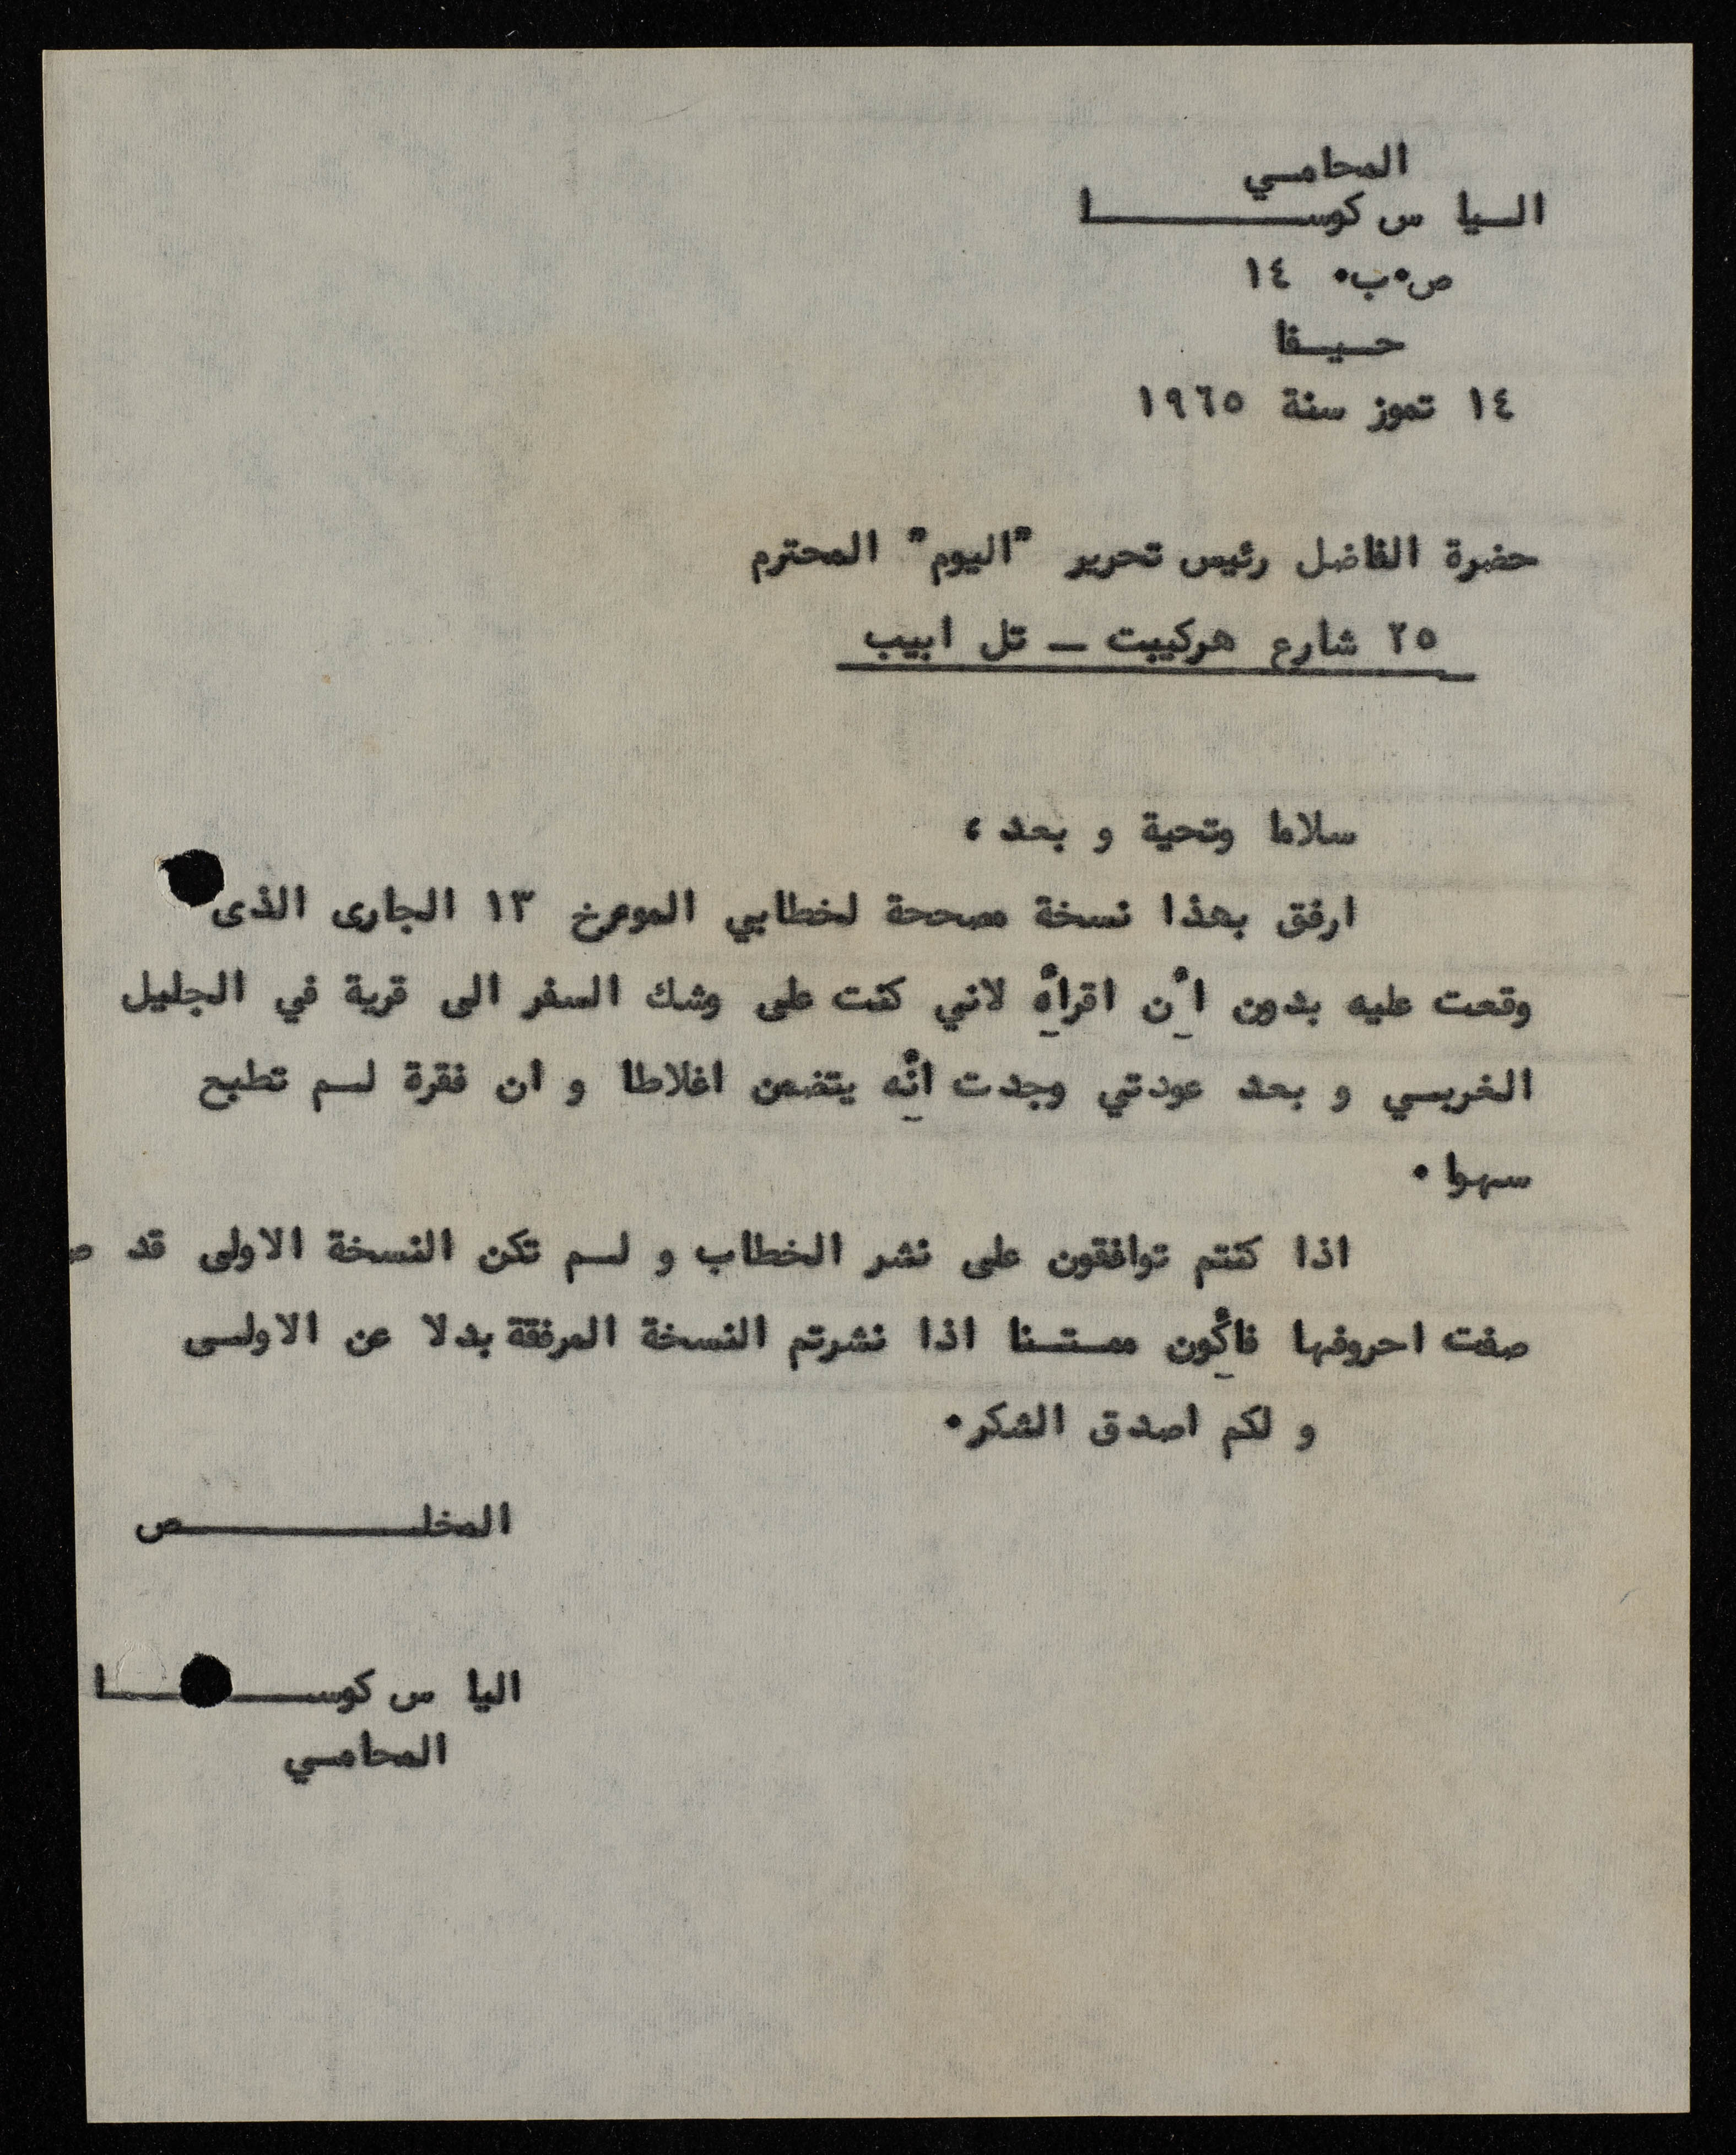 المحامي
الياس كوسا
ص.ب. ١٤
حيفا
١٤ تموز سنة ١٩٦٥
حضرة الفاضل رئيس تحرير "اليوم" المحترم
٢٥ شارع هركيبت - تل ابيب
سلاما وتحية و بعد ،
ارفق بهذا نسخة مصححة لخطابي الموءرخ ١٣ الجارى الذى
وقعت عليه بدون أن اقرأه لاني كنت على وشك السفر الى قرية في الجليل
الغربي و بعد عودتي وجدت أنه يتضمن اغلاطا و ان فقرة لم تطبع
سهوا .
اذا كنتم توافقون على نشر الخطاب و لم تكن النسخة الاولى قد ص
صفت احروفها فأكون ممتنا اذا نشرتم النسخة المرفقة بدلا عن الاولى
و لكم اصدق الشكر.
المخلص
الياس كوسا
المحامي